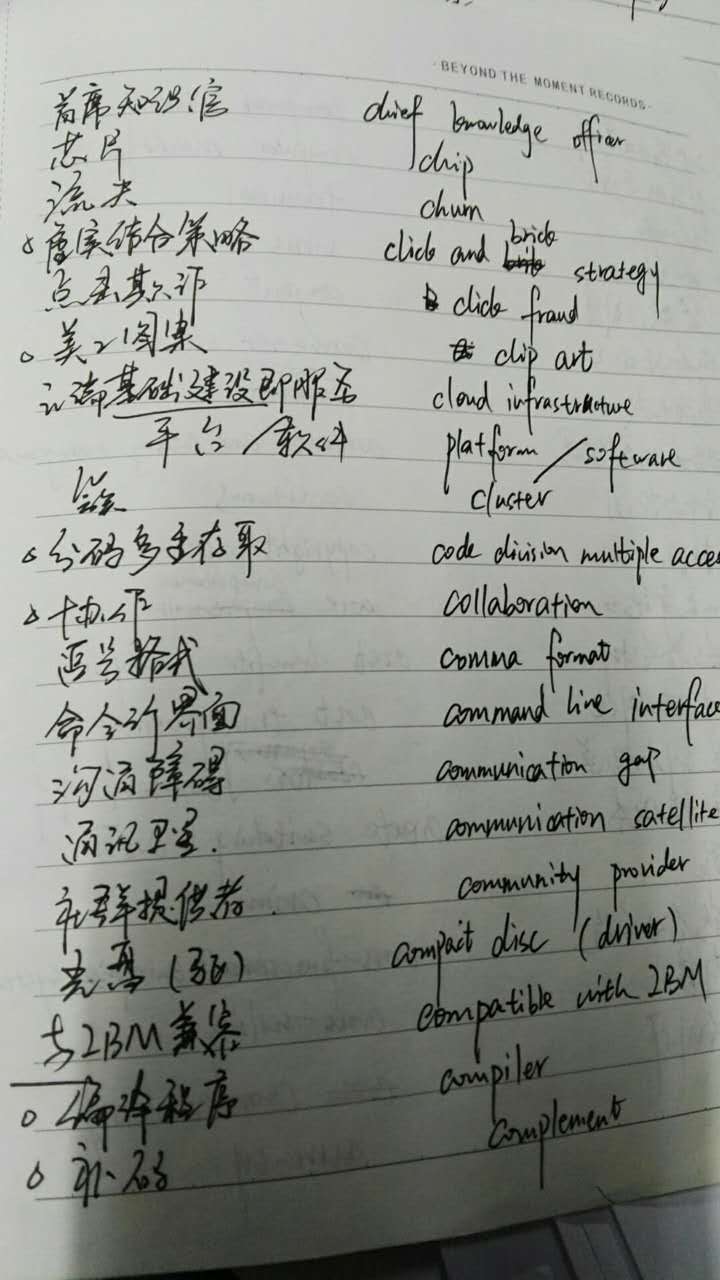 BEYOND THE MOMENT RECORDS
首席知识官 chief knowledge officer
芯片 chip
流失 churn
虚实结合策略 click and brick strategy
点击欺诈 click fraud
美工图集 clip art
云端基础建设即服务 cloud infrastructure
平台/软件 platform/software
cluster
分码多重存取 code division multiple acces
协作 collaboration
逗号格式 comma format
命令行界面 command line interface
沟通障碍 communication gap
通讯卫星. communication satellite
社群提供者. community provider
光盘(驱) compact disc (driver)
与IBM兼容 compatible with IBM
编译程序 compiler
补码 complement